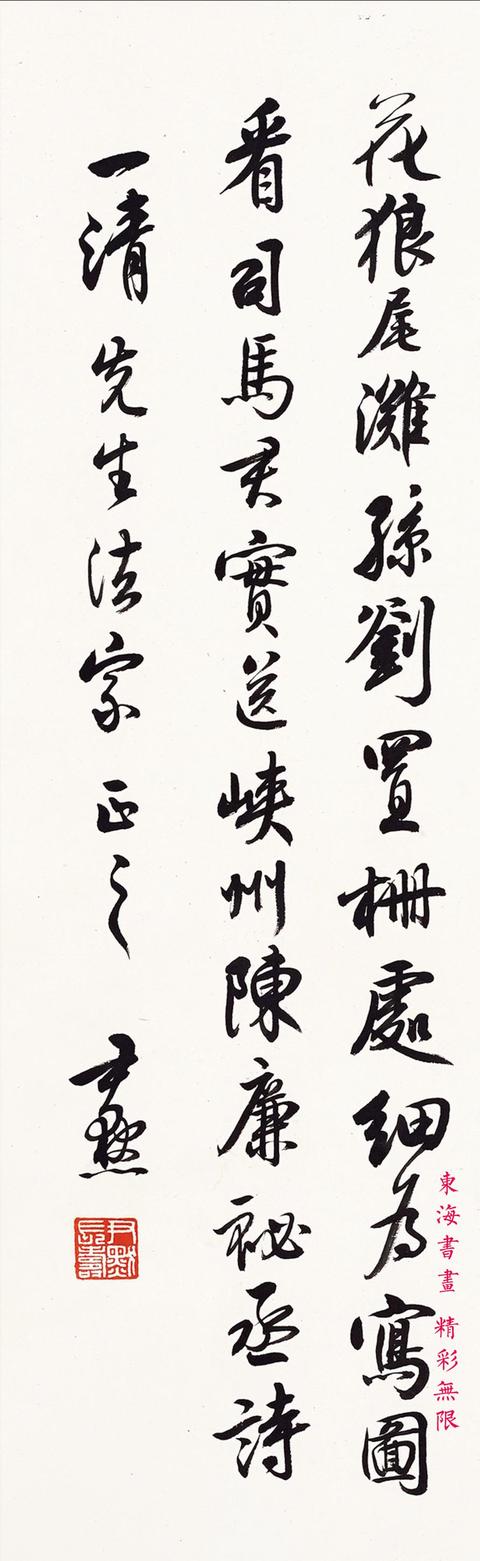 花狼尾灘孫劉置柵處細為寫圖
看司馬君實送峽州陳廉祕丞詩
一清先生法家正之 尹默
尹默長壽
東海書畫 精彩無限